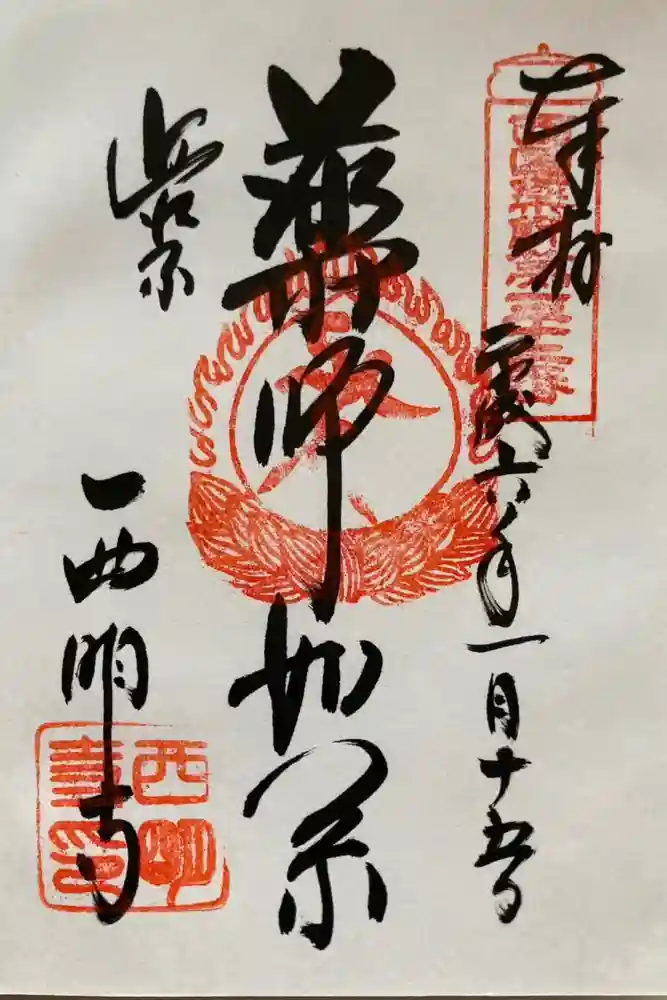 奉拝
令和六年一月十五日
薬師如来
西明寺
西明寺印